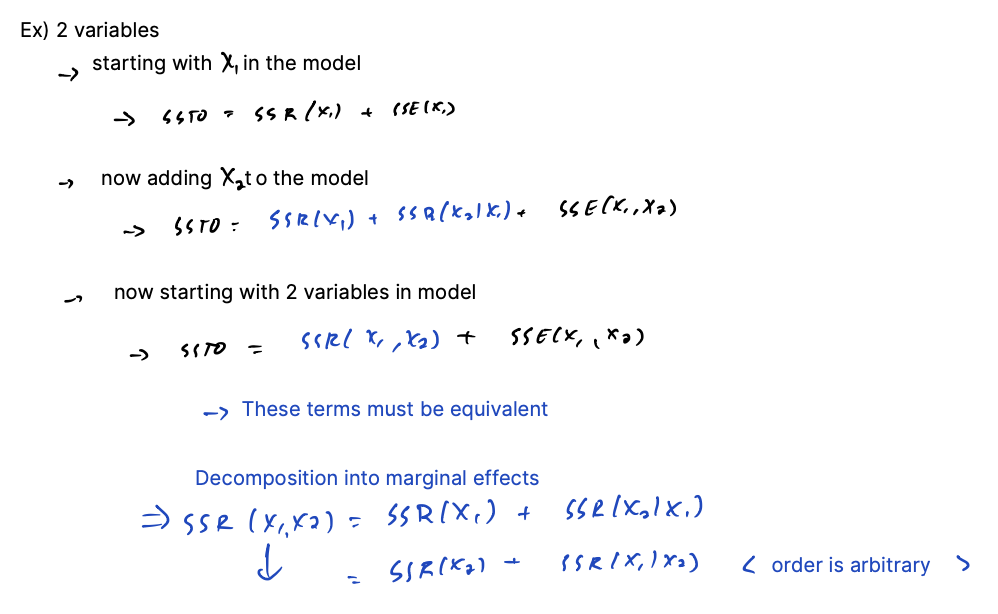 Ex) 2 variables
→ starting with X₁ in the model
→ SSTO = SSR(X₁) + SSE(X₁)
→ now adding X₂ to the model
→ SSTO = SSR(X₁) + SSR(X₂|X₁) + SSE(X₁,X₂)
→ now starting with 2 variables in model
→ SSTO = SSR(X₁,X₂) + SSE(X₁,X₂)
→ These terms must be equivalent
Decomposition into marginal effects
⇒ SSR(X₁,X₂) = SSR(X₁) + SSR(X₂|X₁)
↓ = SSR(X₂) + SSR(X₁|X₂) < order is arbitrary >